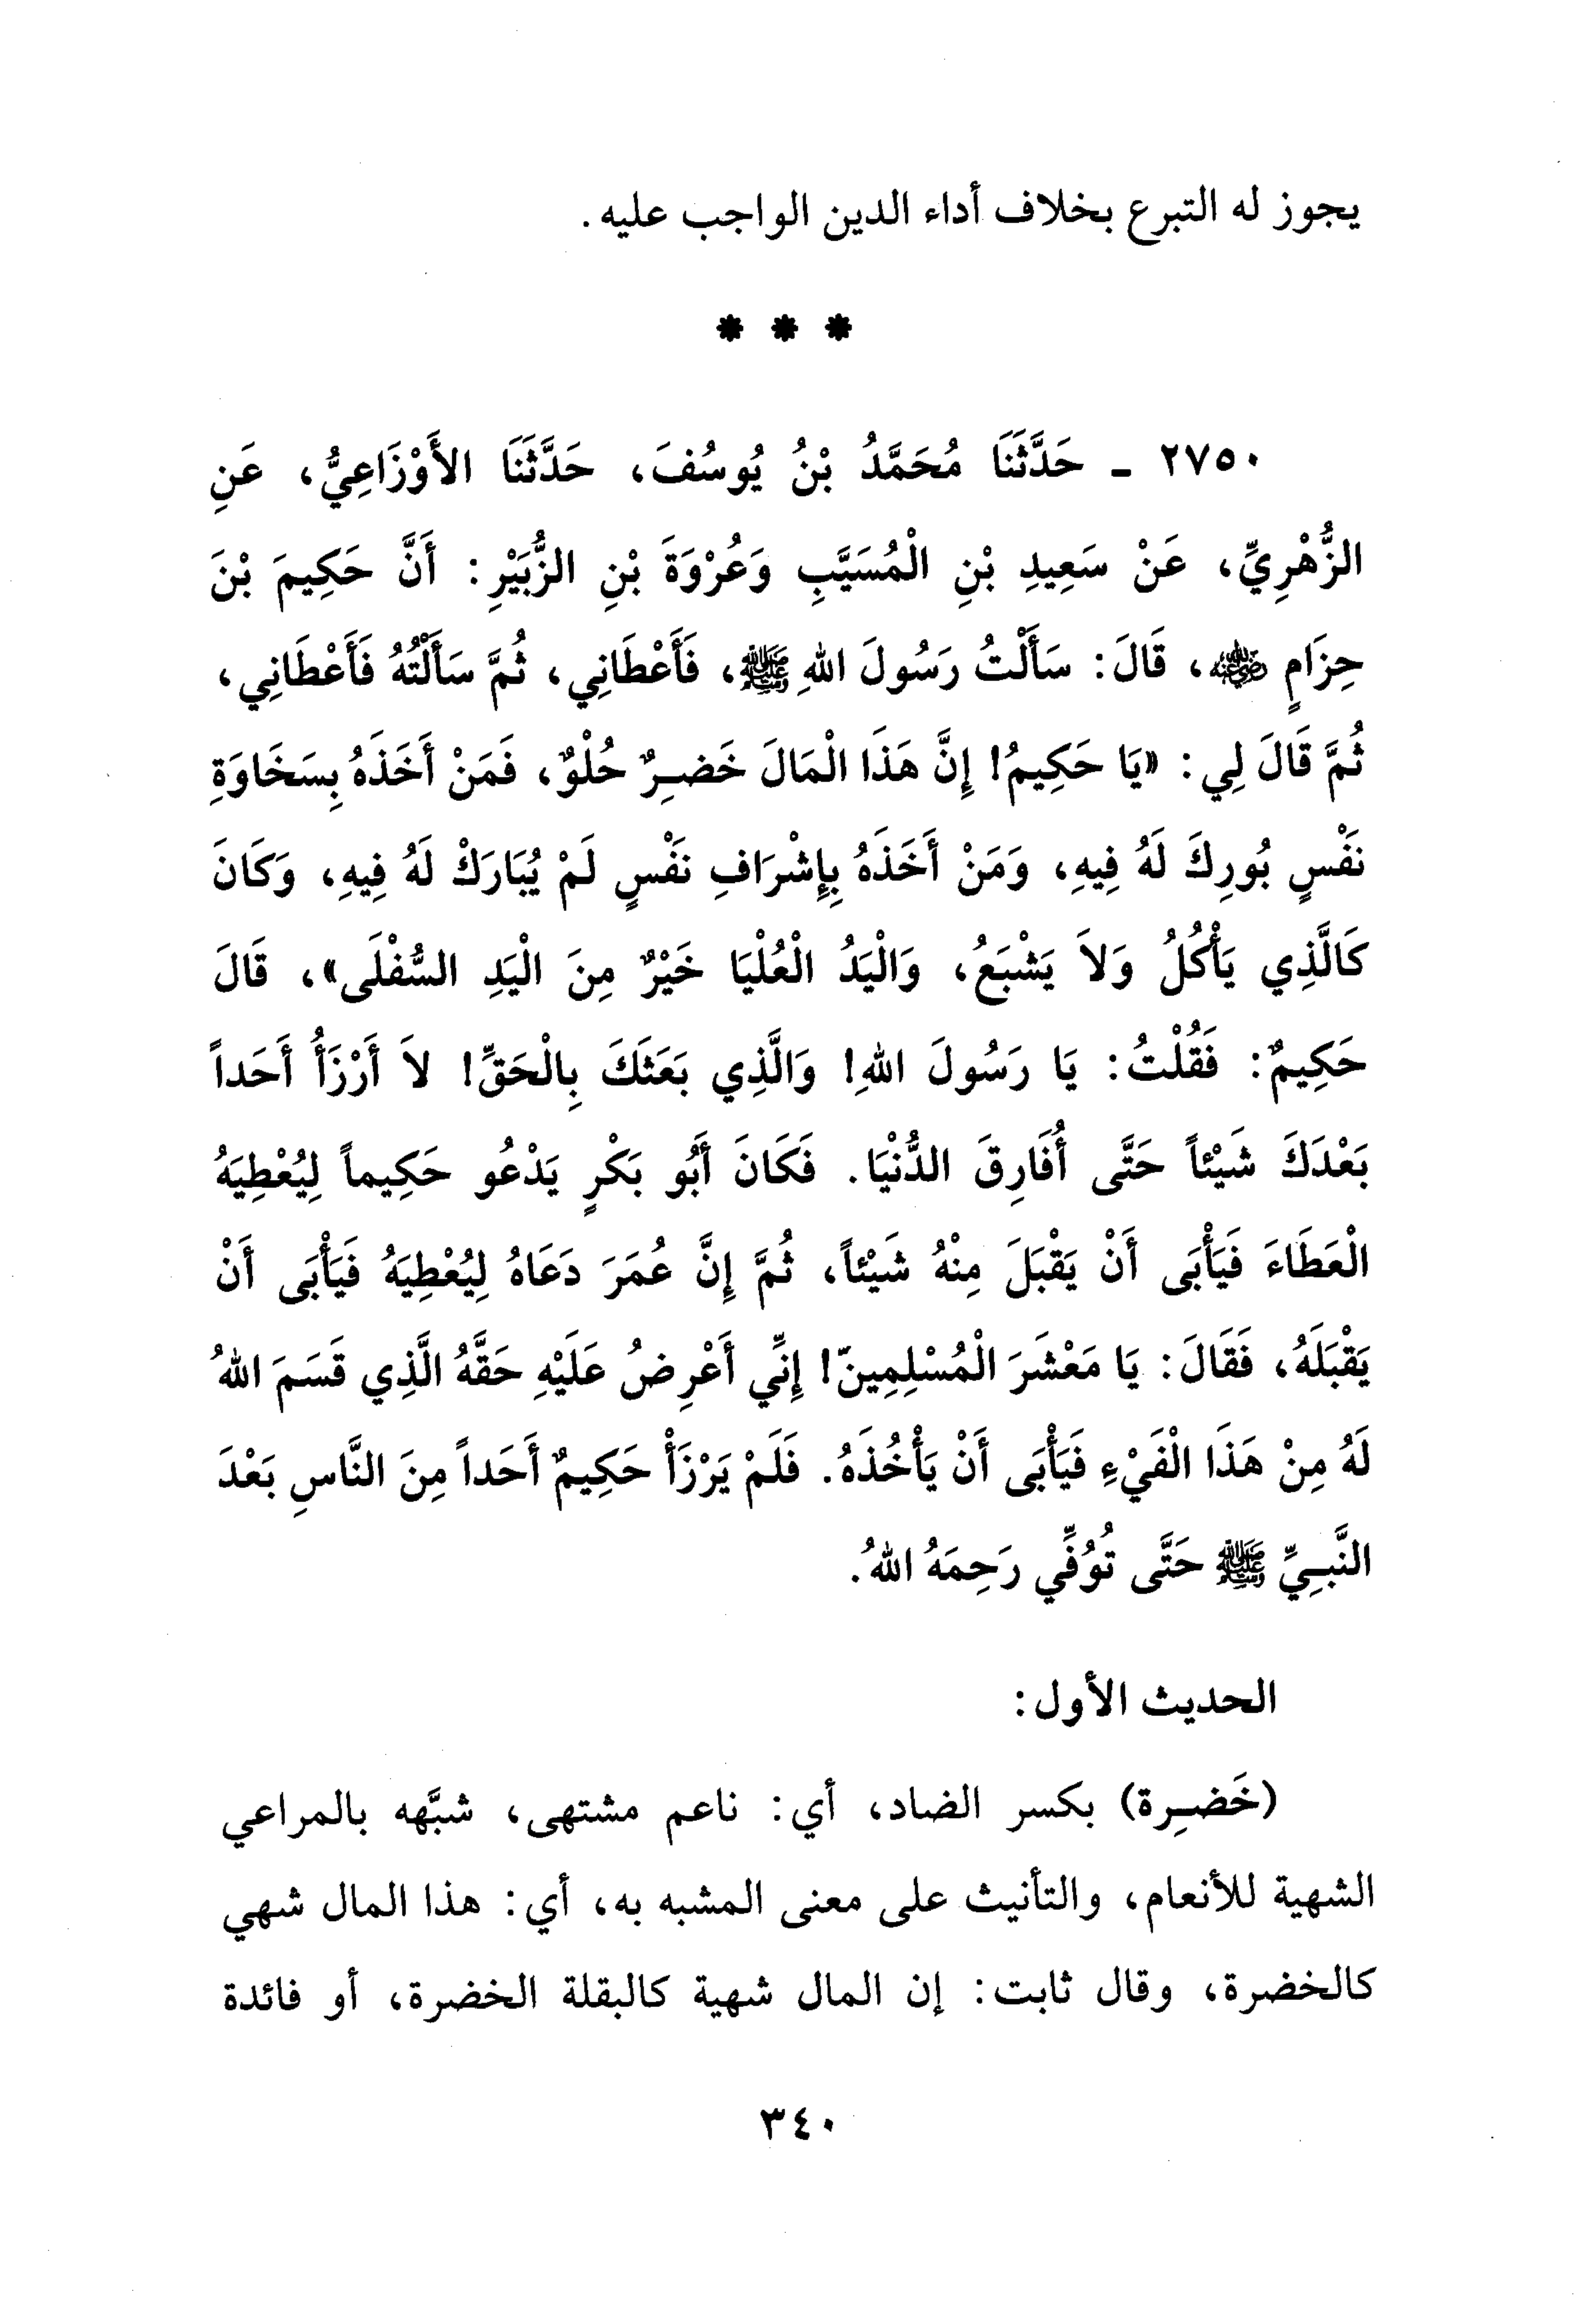 يجوز له التبرع بخلاف أداء الدين الواجب عليه.
* * *
٢٧٥٠ ـ حَدَّثَنَا مُحَمَّدُ بْنُ يُوسُفَ، حَدَّثَنَا الأَوْزَاعِيُّ، عَنِ
الزُّهْرِيِّ، عَنْ سَعِيدِ بْنِ الْمُسَيَّبِ وَعُرْوَةَ بْنِ الزُّبَيْرِ: أَنَّ حَكِيمَ بْنَ
حِزَامٍ رضي الله عنه، قَالَ: سَأَلْتُ رَسُولَ اللهِ ﷺ، فَأَعْطَانِي، ثُمَّ سَأَلْتُهُ فَأَعْطَانِي،
ثُمَّ قَالَ لِي: «يَا حَكِيمُ! إِنَّ هَذَا الْمَالَ خَضِرٌ حُلْوٌ، فَمَنْ أَخَذَهُ بِسَخَاوَةِ
نَفْسٍ بُورِكَ لَهُ فِيهِ، وَمَنْ أَخَذَهُ بِإِشْرَافِ نَفْسٍ لَمْ يُبَارَكْ لَهُ فِيهِ، وَكَانَ
كَالَّذِي يَأْكُلُ وَلاَ يَشْبَعُ، وَالْيَدُ الْعُلْيَا خَيْرٌ مِنَ الْيَدِ السُّفْلَى»، قَالَ
حَكِيمٌ: فَقُلْتُ: يَا رَسُولَ اللهِ! وَالَّذِي بَعَثَكَ بِالْحَقِّ! لاَ أَرْزَأُ أَحَداً
بَعْدَكَ شَيْئاً حَتَّى أُفَارِقَ الدُّنْيَا. فَكَانَ أَبُو بَكْرٍ يَدْعُو حَكِيماً لِيُعْطِيَهُ
الْعَطَاءَ فَيَأْبَى أَنْ يَقْبَلَ مِنْهُ شَيْئاً، ثُمَّ إِنَّ عُمَرَ دَعَاهُ لِيُعْطِيَهُ فَيَأْبَى أَنْ
يَقْبَلَهُ، فَقَالَ: يَا مَعْشَرَ الْمُسْلِمِينّ! إِنِّي أَعْرِضُ عَلَيْهِ حَقَّهُ الَّذِي قَسَمَ اللهُ
لَهُ مِنْ هَذَا الْفَيْءِ فَيَأْبَى أَنْ يَأْخُذَهُ. فَلَمْ يَرْزَأْ حَكِيمٌ أَحَداً مِنَ النَّاسِ بَعْدَ
النَّبِيِّ ﷺ حَتَّى تُوُفِّي رَحِمَهُ اللهُ.
الحديث الأول:
(خَضِرة) بكسر الضاد، أي: ناعم مشتهى، شبَّهه بالمراعي
الشهية للأنعام، والتأنيث على معنى المشبه به، أي: هذا المال شهي
كالخضرة، وقال ثابت: إن المال شهية كالبقلة الخضرة، أو فائدة
٣٤٠